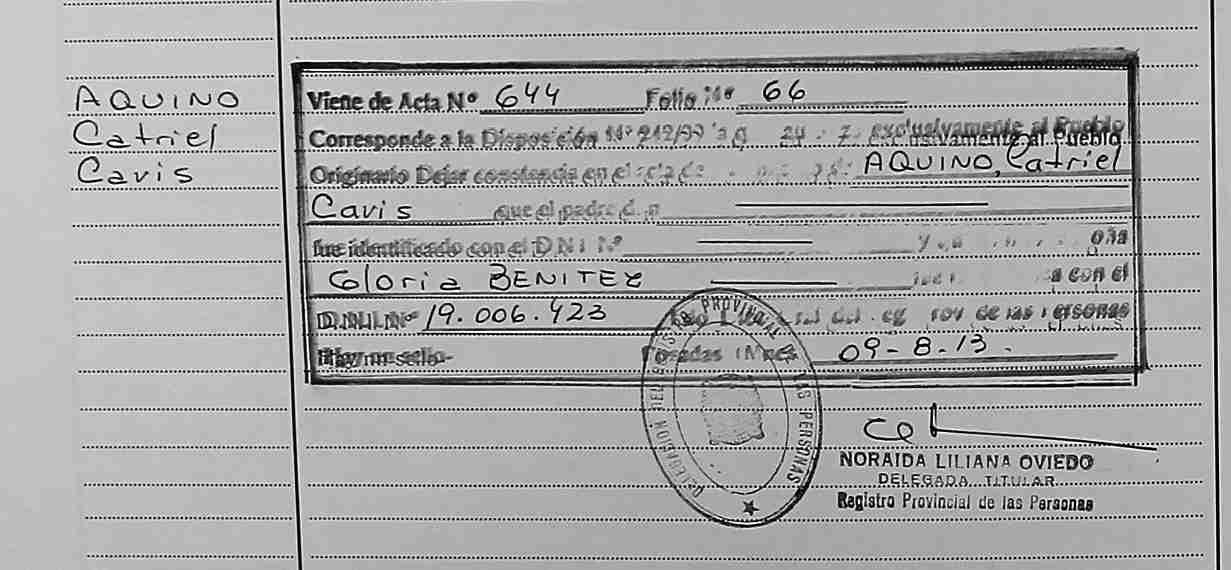 AQUINO
Catriel
Cavis
Viene de Acta Nº 644 Folio Nº 66
Corresponde a la Disposición Nº 242/99 exclusivamente al Pueblo
Originario Dejar constancia en el acta de AQUINO, Catriel
Cavis que el padre
fue identificado con el D.N.I Nº
Gloria BENITEZ con el
D.N.I. Nº 19.006.423 de las Personas
Hay un sello- Posadas (Mnes 09-8-13.
DELEGACION DEL REGISTRO PROVINCIAL DE LAS PERSONAS
NORAIDA LILIANA OVIEDO
DELEGADA TITULAR
Registro Provincial de las Personas